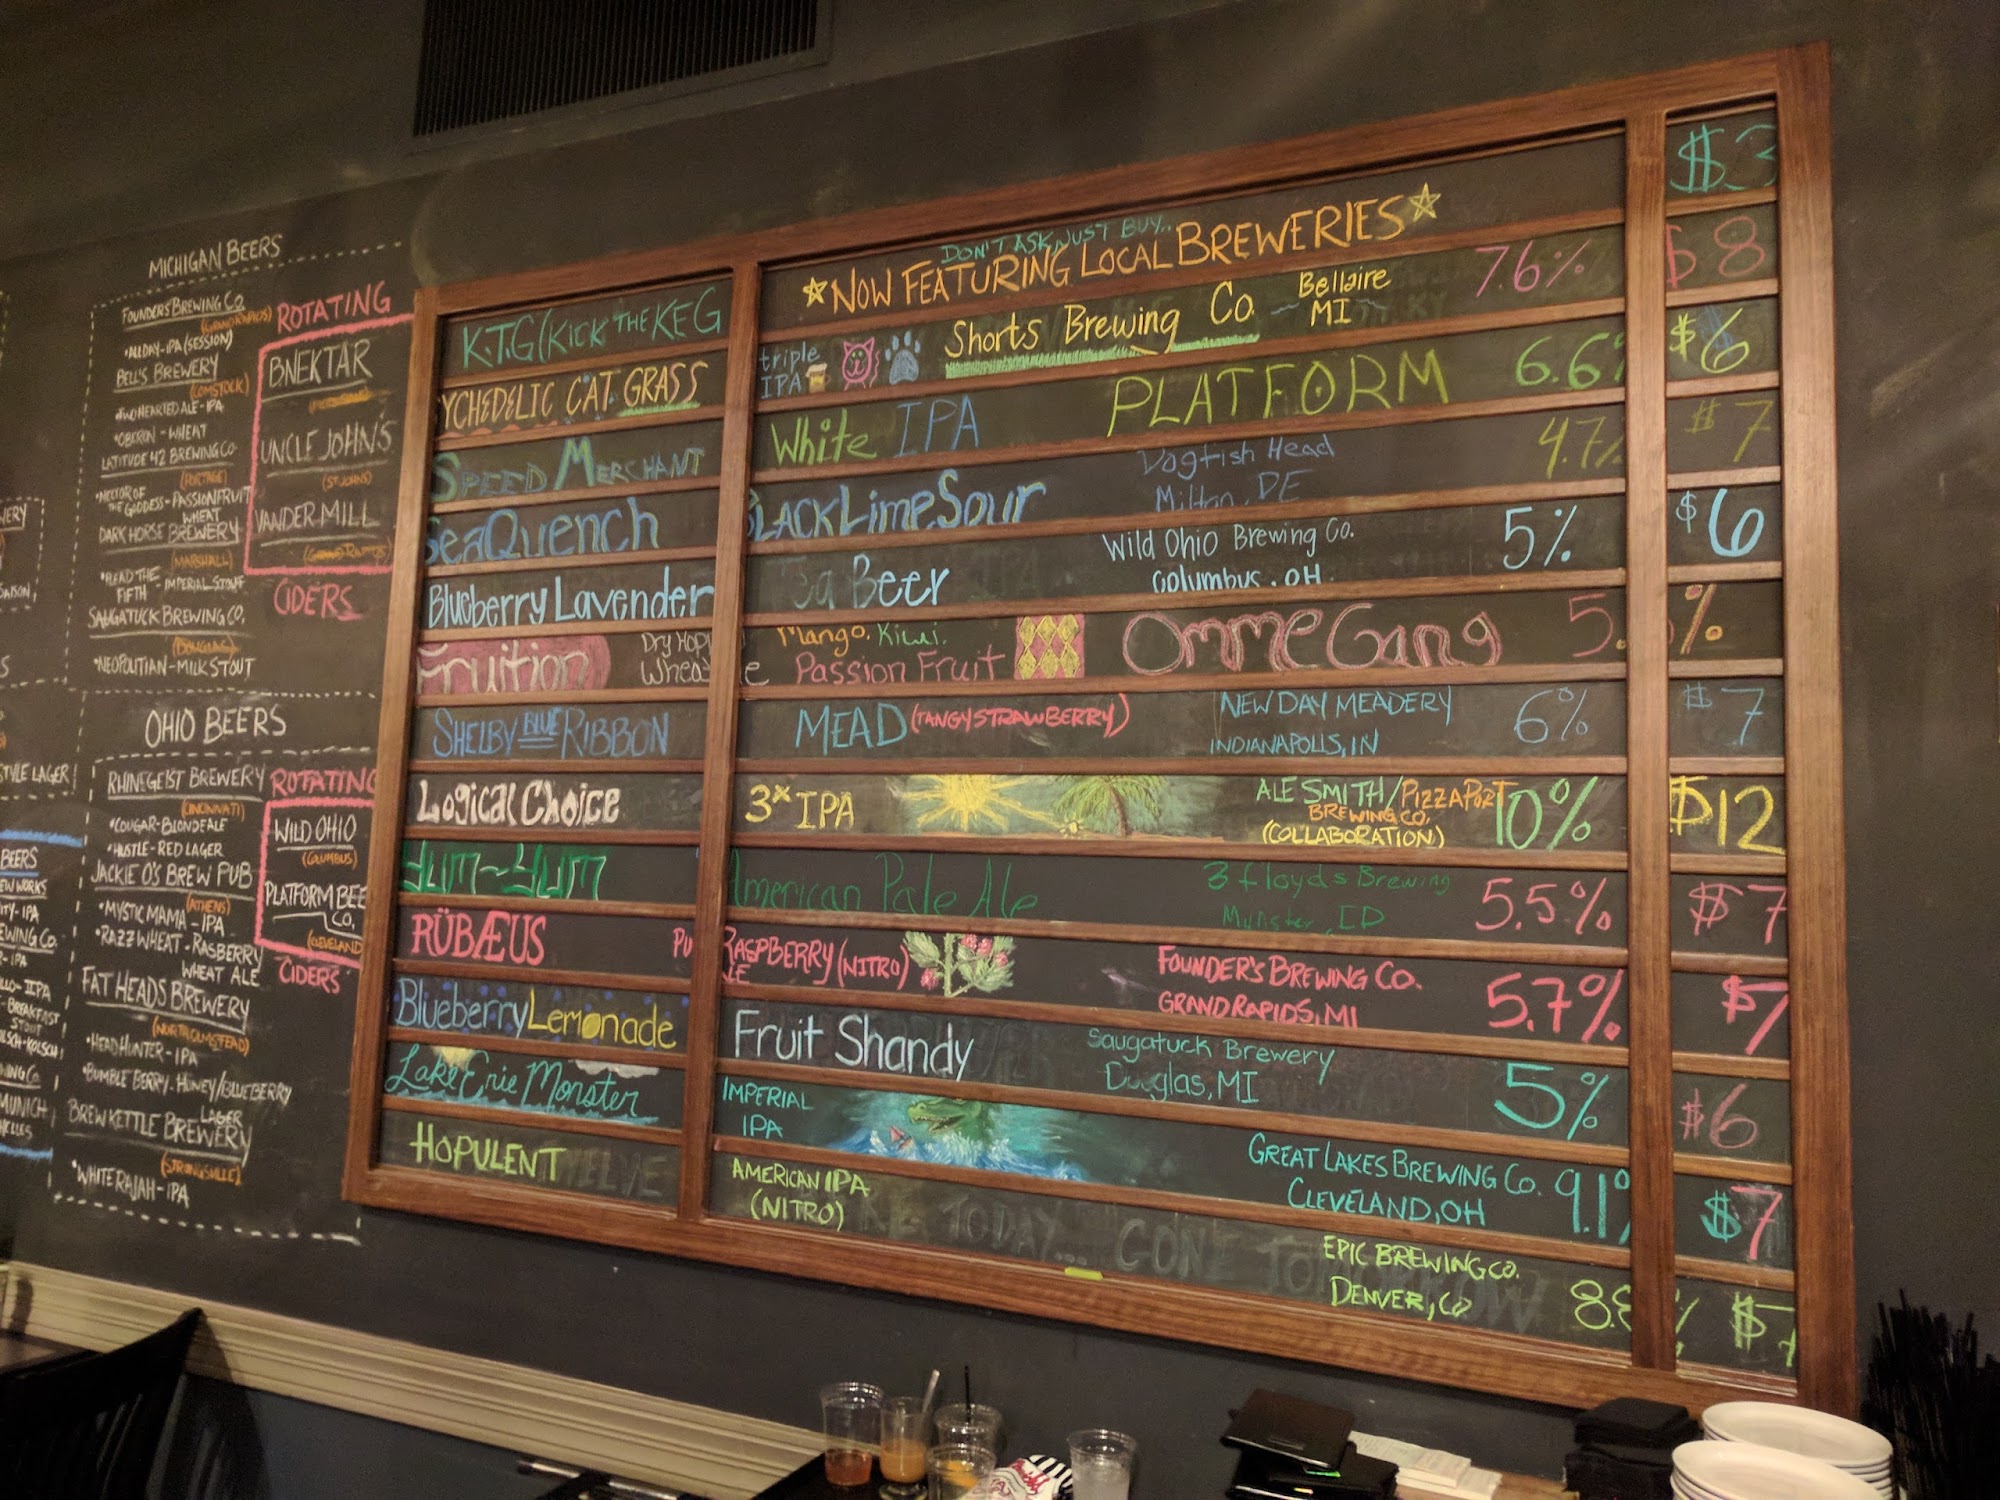 MICHIGAN BEERS
FOUNDERS BREWING CO.
(GRAND RAPIDS)
•ALL DAY-IPA (SESSION)
BELL'S BREWERY
(COMSTOCK)
•TWO HEARTED ALE-IPA
•OBERON-WHEAT
LATITUDE 42 BREWING CO.
(PORTAGE)
•NECTOR OF THE GODDESS-PASSIONFRUIT WHEAT
DARK HORSE BREWERY
(MARSHALL)
FIFTH-IMPERIAL STOUT
SAUGATUCK BREWING CO.
(DOUGLAS)
•NEOPOLITIAN-MILK STOUT
ROTATING
B.NEKTAR
UNCLE JOHN'S
(ST. JOHNS)
VANDER MILL
(GRAND RAPIDS)
CIDERS
OHIO BEERS
RHINEGEIST BREWERY
(CINCINNATI)
•COUGAR-BLONDE ALE
•HUSTLE-RED LAGER
JACKIE O'S BREW PUB
(ATHENS)
•MYSTIC MAMA-IPA
•RAZZ WHEAT-RASBERRY WHEAT ALE
FAT HEADS BREWERY
(NORTH OLMSTEAD)
•HEAD HUNTER-IPA
•BUMBLE BERRY-HONEY/BLUEBERRY LAGER
BREW KETTLE BREWERY
(STRONGSVILLE)
•WHITE RAJAH-IPA
ROTATING
WILD OHIO
(COLUMBUS)
PLATFORM BEE
CO.
(CLEVELAND
CIDERS
STYLE LAGER
BEERS
DON'T ASK, JUST BUY..
K.T.G (KICK THE KEG $3
NOW FEATURING LOCAL BREWERIES
YCHEDELIC CAT GRASS triple IPA Shorts Brewing Co. Bellaire MI 7.6% $8
SPEED MERCHANT White IPA PLATFORM 6.6% $6
SeaQuench BLACK Lime Sour Dogfish Head Milton, DE 4.7% $7
Blueberry Lavender Tea Beer Wild Ohio Brewing Co. Columbus, OH. 5% $6
Fruition Mango, Kiwi, Passion Fruit OmmeGang
SHELBY BLUE RIBBON MEAD (TANGY STRAWBERRY) NEW DAY MEADERY INDIANAPOLLS, IN 6% $7
Logical Choice 3X IPA ALE SMITH/PIZZA PORT BREWING CO. (COLLABORATION) 10% $12
YUM-YUM American Pale Ale 3 floyds Brewing 5.5% $7
RÜBÆUS RASPBERRY (NITRO) FOUNDER'S BREWING CO. GRAND RAPIDS, MI 5.7% $7
Blueberry Lemonade Fruit Shandy Saugatuck Brewery Douglas, MI 5% $6
Lake Erie Monster IMPERIAL IPA GREAT LAKES BREWING CO. CLEVELAND, OH 9.1% $7
HOPULENT AMERICAN IPA (NITRO) EPIC BREWING CO. DENVER, CO $7
TODAY... GONE TOMORROW